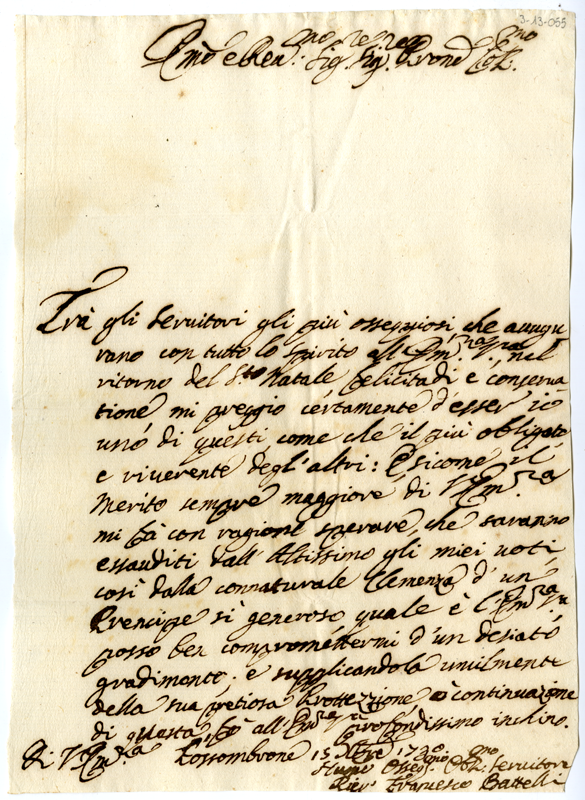 3-13-055
Em̃o e Rev.mo Sig.re Sig.re Pron̄e Col.mo
Trà gli servitori gli più ossequiosi, che augu
rano con tutto lo spirito all'Em.za V.ra, nel
ritorno del S.to Natale felicitadi e conserva
tione mi preggio certamente d'esser io
uno di questi, come che il più obligato
e riverente degl'altri: E sicome il
Merito sempre maggiore di V. Em.za
mi fà con ragione sperare, che saranno
essauditi dall'Altissimo gli miei voti
così dalla connaturale Clemenza d'un
Prencipe sì generoso quale è l'Em.za V.ra
posso ben compromettermi d'un desiato
gradimento; e supplicandola umilmente
della sua pretiosa Prottezzione, e continuazione
di questa fò all'Em.za V.ra profondissimo inchino.
Di V. Em.za Fossombrone 15 Xbre 1720
Humo Osseq.mo Obl: Servitore
Pier Francesco Battelli